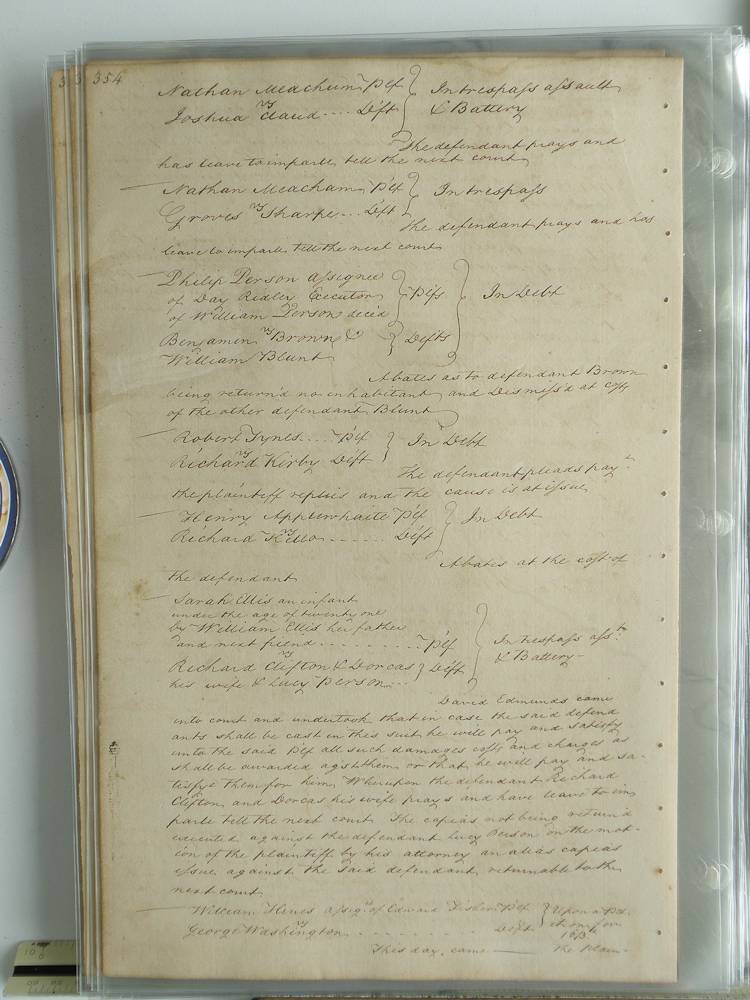 354
Nathan Meachum Plf } In trespass assault
vs
Joshua Claud .... Deft } & Battery
The defendant prays and
has leave to imparle tell the next court
Nathan Meacham Plf } In trespass
vs
Groves Sharpe ... Deft }
The defendant prays and has
leave to imparle tell the next court
Philip Person assignee
of Day Ridley Executor } Plfs } In Debt
of William Person decd
vs
Benjamin Brown & } Defts
William Blunt
Abates as to defendant Brown
being return'd no inhabitant and Dismiss'd at costs
of the other defendant Blunt
Robert Tynes .... Plf } In Debt
vs
Richard Kirby Deft
The defendant pleads payt
the plaintiff replies and the cause is at issue
Henry Applewhaite Plf } In Debt
vs
Richard ...... Deft
Abates at the cost of
the defendant
Sarah Ellis an infant
under the age of twenty one
by William Ellis her father
and next friend ......... Plf } In trespass asst
vs
& Battery
Richard Clifton & Dorcas } Deft
his wife & Lucy Person ...
David Edmunds came
into court and undertook that in case the said defend
ants shall be cast in this suit he will pay and satisfy
unto the said Plf all such damages costs and charges as
shall be awarded agst them or that he will pay and sa-
tisfye them for him, Whereupon the defendant Richard
Clifton and Dorcas his wife prays and have leave to im
parle tell the next court The capias not being return'd
executed against the defendant Lucy Person on the mot-
ion of the plaintiff by his attorney an alias capias
issue against the said defendant returnable to the
next court
William Hines assigee of Edward Plf } Upon a Pet.
vs
George Washington .......... Deft
This day came the Plain-